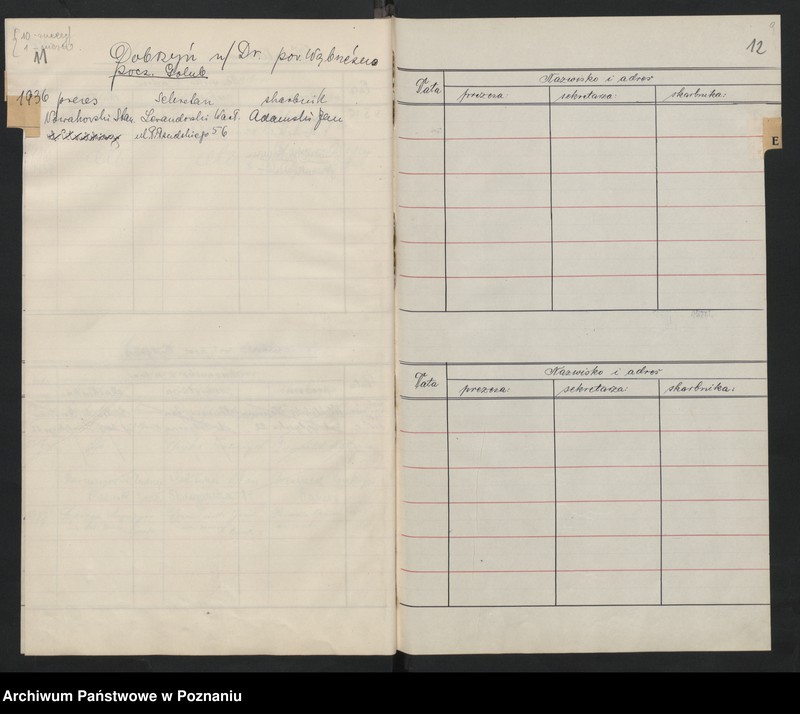 11
Dobrzyń n/Dr. pow. Wąbrzeźno
pocz. Golub
1936 prezes Sekretarz skarbnik
Nowakowski Stan. Lewandowski Wacł. Adamski Jan
ul. Piłsudskiego 56
9
12
Data Nazwisko i adres
prezesa: sekretarza: skarbnika:
E
Data Nazwisko i adres
prezesa: sekretarza: skarbnika:
Archiwum Państwowe w Poznaniu